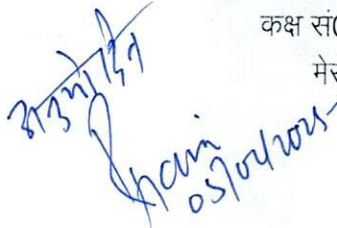 कक्ष सं
मेस
अनुमोदित
05/04/2025